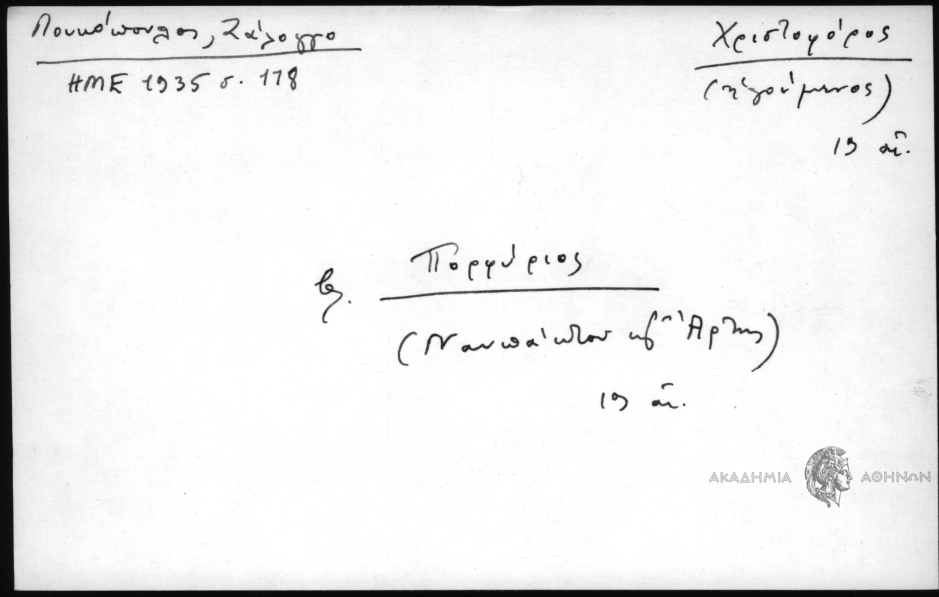 Λουκόπουλος, Ζάλογγο
ΗΜΕ 1935 σ. 178
Χριστοφόρος
(ηγούμενος)
19 αἰ.
βλ. Πορφύριος
(Ναυπάκτου κ' Ἄρτης)
19 αἰ.
ΑΚΑΔΗΜΙΑ ΑΘΗΝΩΝ